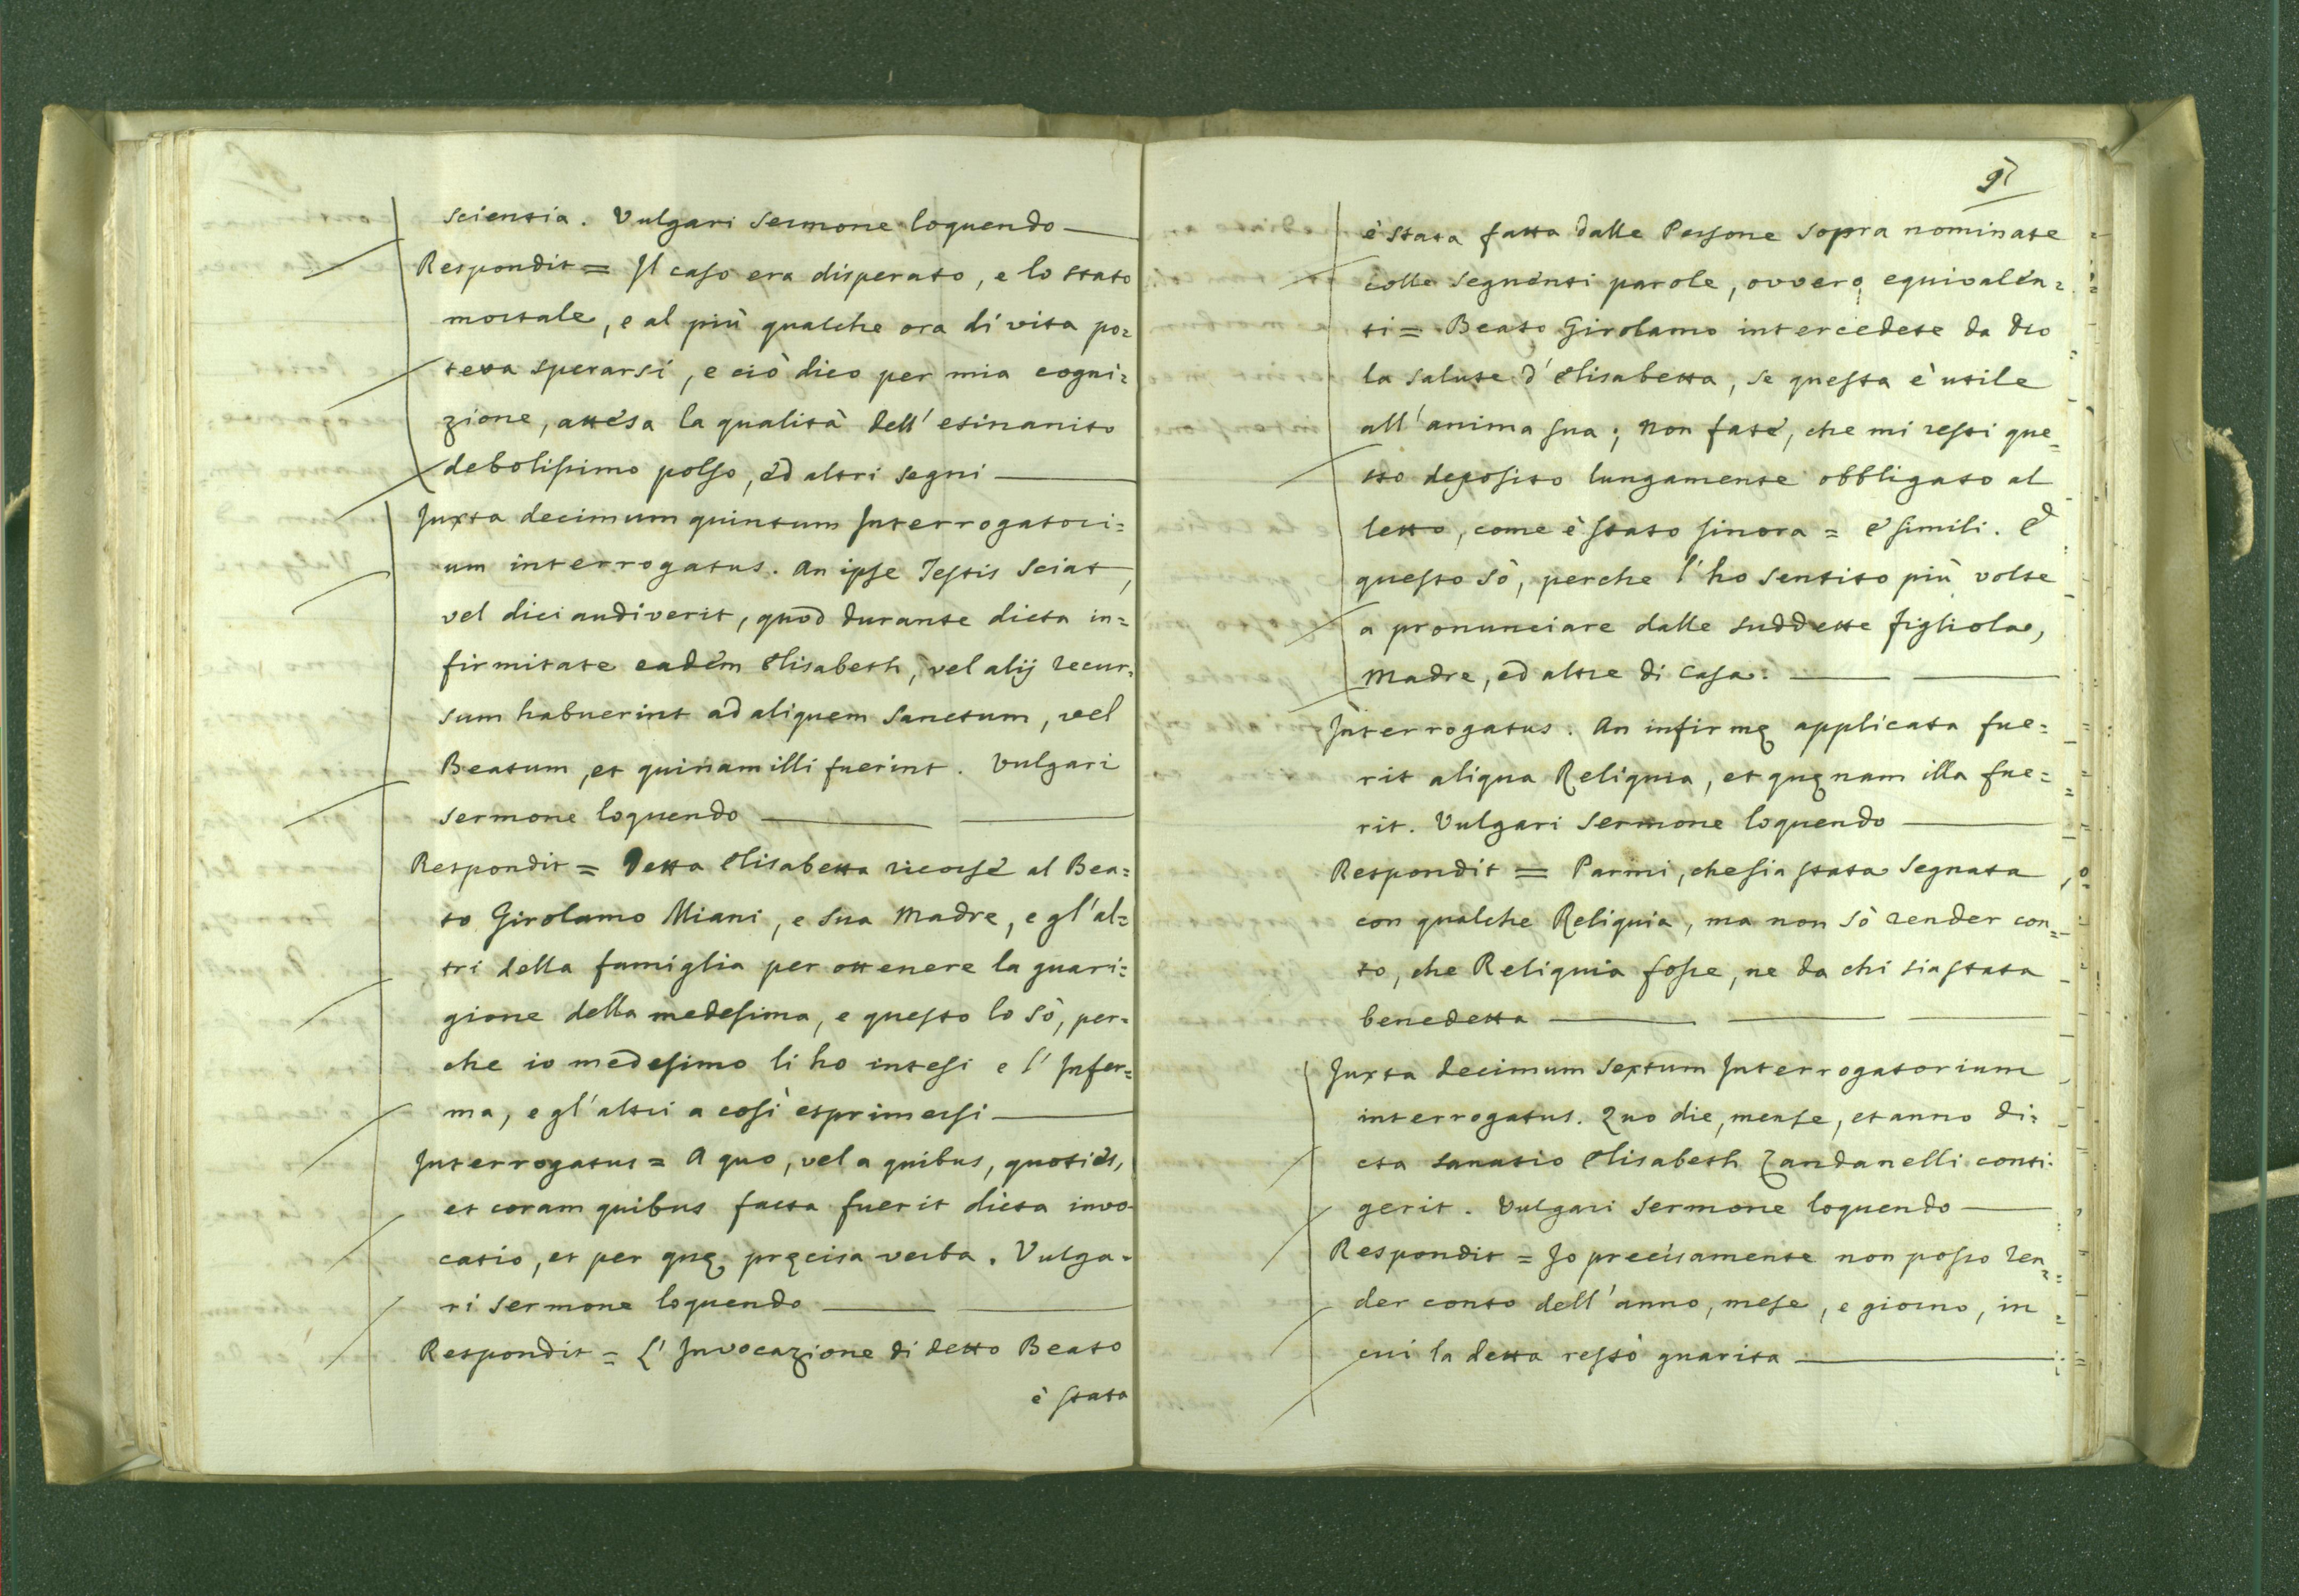 scientia. Vulgari sermone loquendo —
Respondit = Il caso era disperato, e lo stato
mortale, e al più qualche ora di vita po=
teva sperarsi, e ciò dico per mia cogni=
zione, attesa la qualità dell' esinanito
debolissimo polso, ed altri segni —
Juxta decimum quintum Interrogatori=
um interrogatus. An ipse Testis sciat,
vel dici audiverit, quod durante dicta in=
firmitate eadem Elisabeth, vel alij recur=
sum habuerint ad aliquem Sanctum, vel
Beatum, et quinam illi fuerint. Vulgari
sermone loquendo — —
Respondit = Detta Elisabetta ricorse al Bea=
to Girolamo Miani, e sua Madre, e gl'al=
tri della famiglia per ottenere la guari=
gione della medesima, e questo lo sò, per=
che io medesimo li ho intesi e l' Infer=
ma, e gl'altri a così esprimersi —
Interrogatus = A quo, vel a quibus, quoties,
et coram quibus facta fuerit dicta invo
catio, et per quę pręcisa verba. Vulga=
ri sermone loquendo — —
Respondit = L' Invocazione di detto Beato
è stata
97
è stata fatta dalle Persone sopra nominate
colle seguenti parole, ovvero equivalen=
ti = Beato Girolamo intercedete da Dio
la salute d' Elisabetta, se questa è utile
all'anima sua; non fate, che mi resti que=
sto deposito lungamente obbligato al
letto, come è stato sinora = e simili. E
questo sò, perche l'ho sentito più volte
a pronunciare dalle suddette figliola,
Madre, ed altre di Casa. — —
Interrogatus. An infirmę applicata fue=
rit aliqua Reliquia, et quęnam illa fue=
rit. Vulgari sermone loquendo —
Respondit = Parmi, che sia stata segnata
con qualche Reliquia, ma non sò render con=
to, che Reliquia fosse, ne da chi sia stata
benedetta — — —
Juxta decimum sextum Interrogatorium
interrogatus. Quo die, mense, et anno di=
cta sanatio Elisabeth Zandanelli conti=
gerit. Vulgari sermone loquendo —
Respondit = Io precisamente non posso ren=
der conto dell'anno, mese, e giorno, in
cui la detta restò guarita —